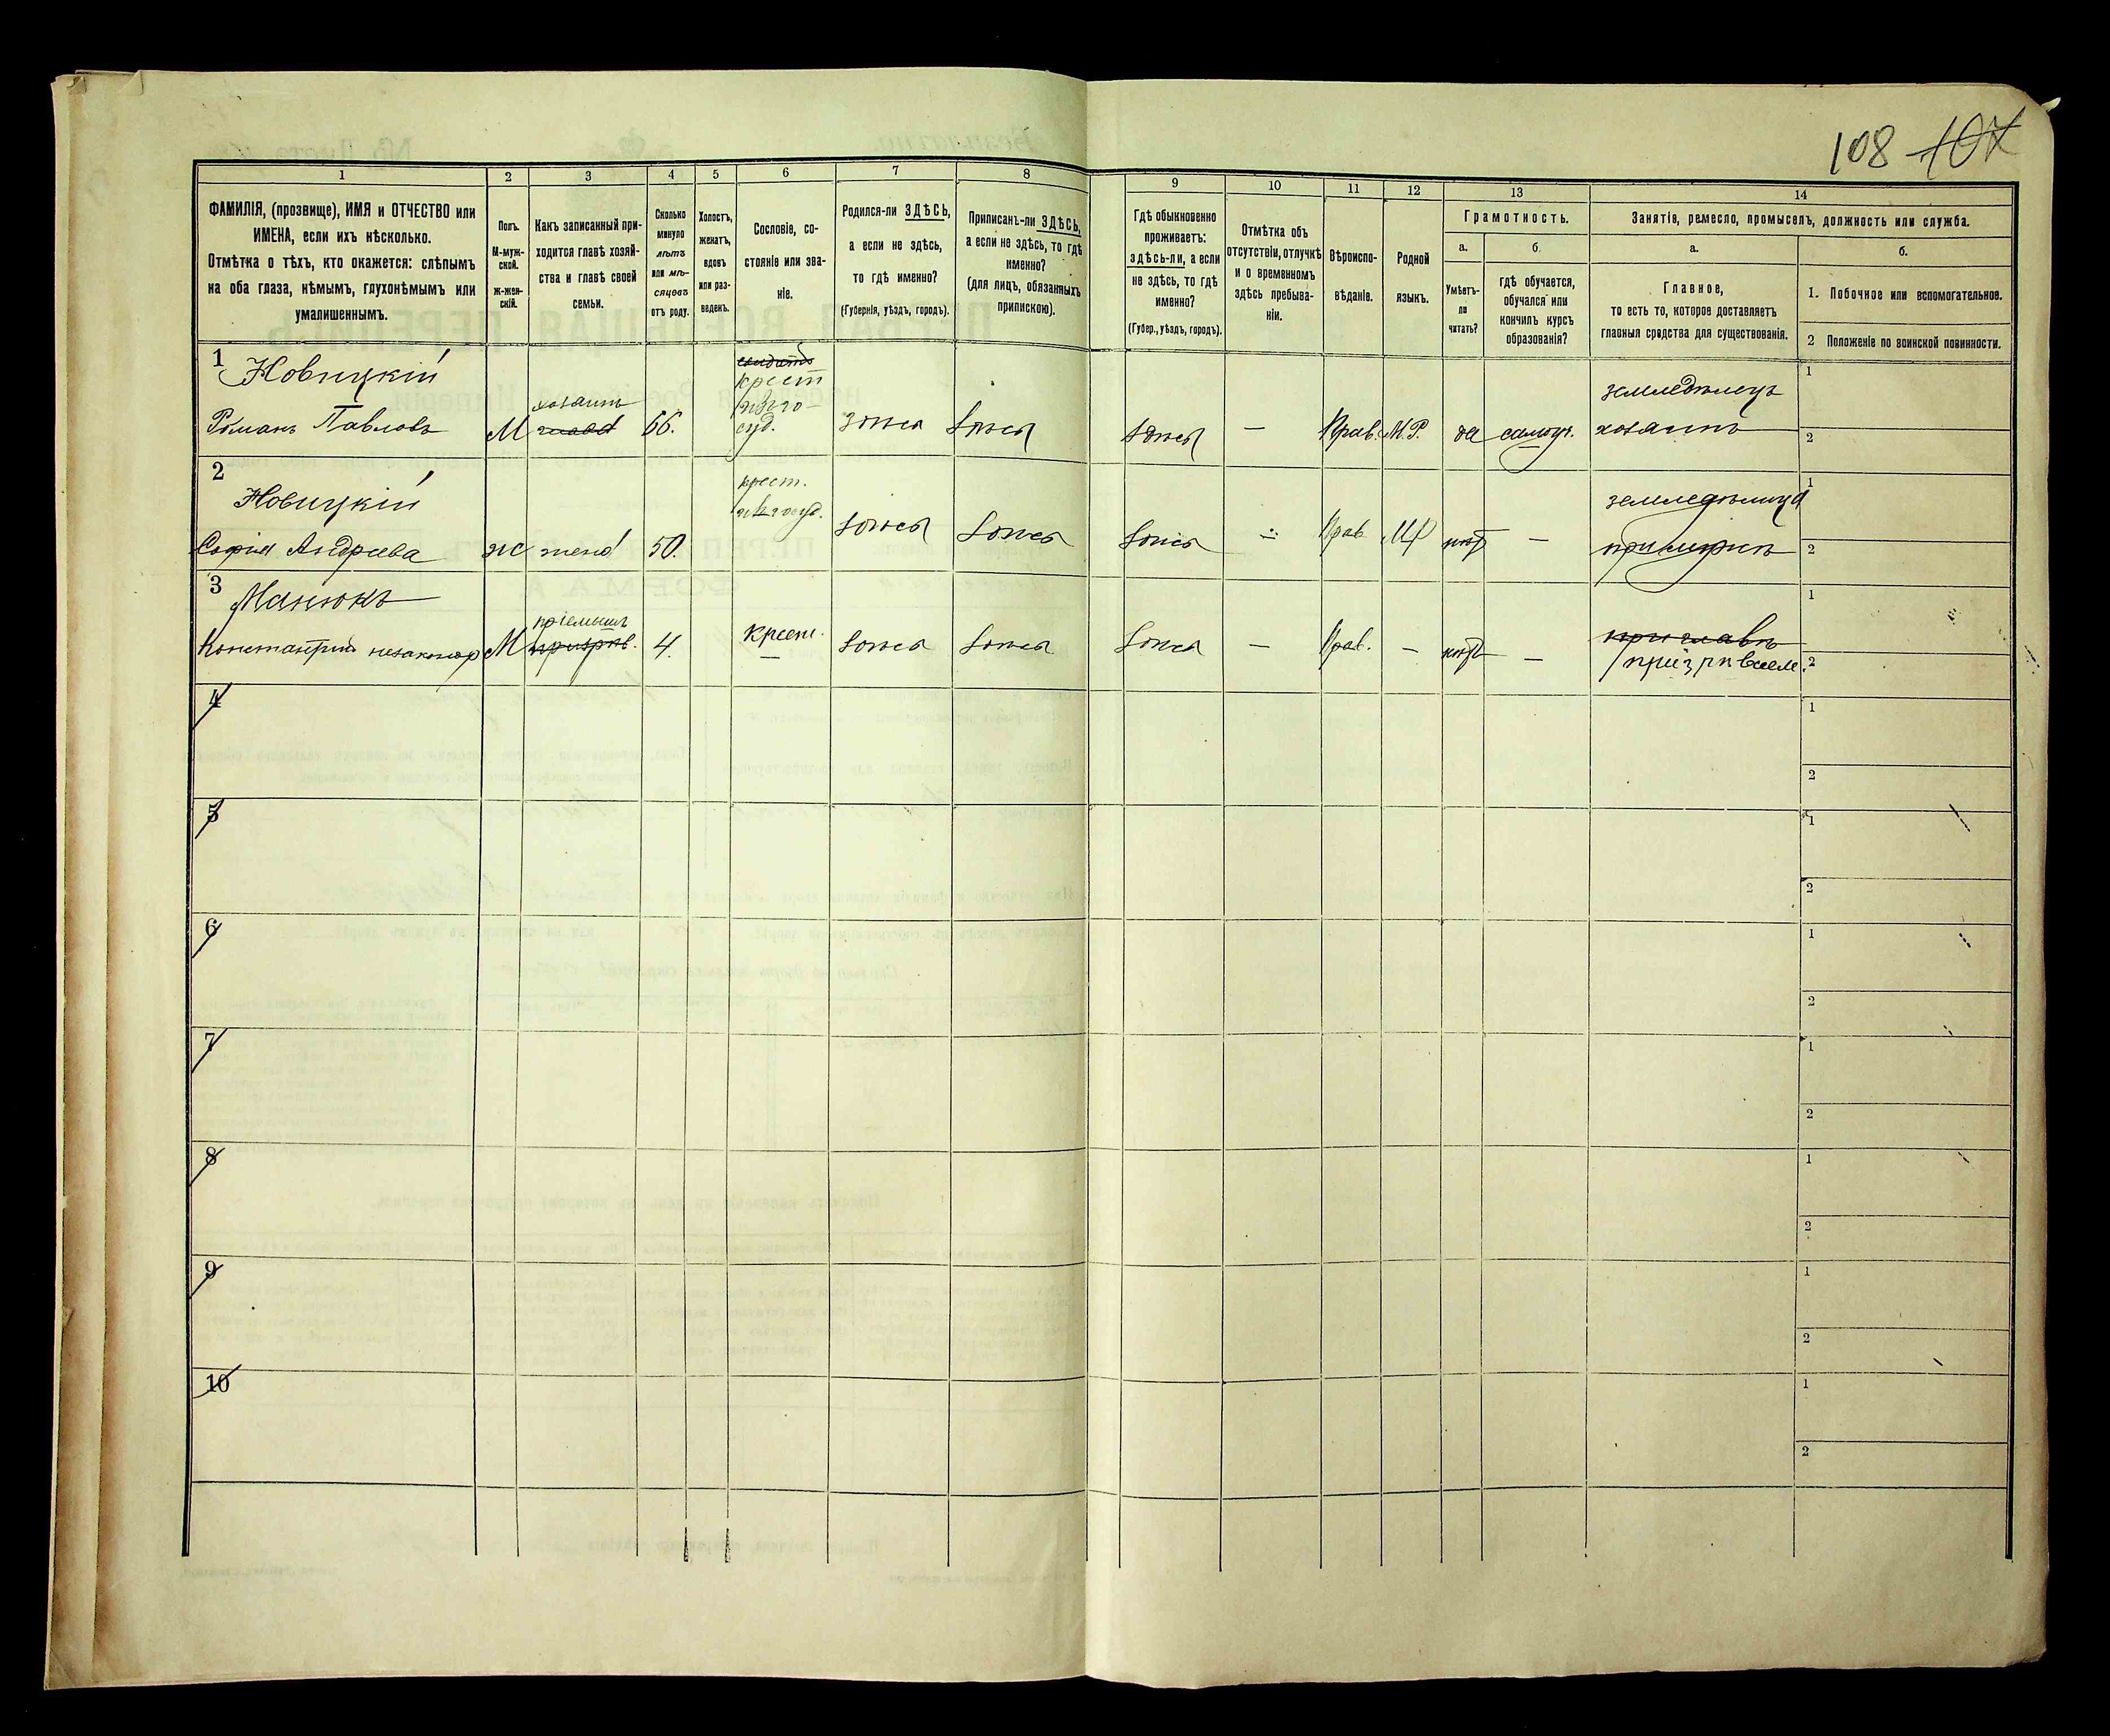 108 107
1
2
3
4
5
6
7
8
9
10
11
12
13
14
ФАМИЛІЯ, (прозвище), ИМЯ и ОТЧЕСТВО или
ИМЕНА, если ихъ нѣсколько.
Отмѣтка о тѣхъ, кто окажется: слѣпымъ
на оба глаза, нѣмымъ, глухонѣмымъ или
умалишеннымъ.
Полъ.
М-муж-
ской.
ж-жен-
скій.
Какъ записанный при-
ходится главѣ хозяй-
ства и главѣ своей
семьи.
Сколько
минуло
лѣтъ
или мѣ-
сяцевъ
отъ роду.
Холостъ,
женатъ,
вдовъ
или раз-
веденъ.
Сословіе, со-
стояніе или зва-
ніе.
Родился-ли ЗДѢСЬ,
а если не здѣсь,
то гдѣ именно?
(Губернія, уѣздъ, городъ).
Приписанъ-ли ЗДѢСЬ,
а если не здѣсь, то гдѣ
именно?
(для лицъ, обязанныхъ
припискою).
Гдѣ обыкновенно
проживаетъ:
здѣсь-ли, а если
не здѣсь, то гдѣ
именно?
(Губер., уѣздъ, городъ).
Отмѣтка объ
отсутствіи, отлучкѣ
и о временномъ
здѣсь пребыва-
ніи.
Вѣроиспо-
вѣданіе.
Родной
языкъ.
Грамотность.
а.
б.
Умѣетъ-
ли
читать?
гдѣ обучается,
обучался или
кончилъ курсъ
образованія?
Занятіе, ремесло, промыселъ, должность или служба.
а.
б.
Главное,
то есть то, которое доставляетъ
главныя средства для существованія.
1. Побочное или вспомогательное.
2 Положеніе по воинской повинности.
1
Новицкій
Романъ Павловъ
М
хозяинъ
66.
крест
изъ го-
суд.
здѣсь
здѣсь
здѣсь
—
Прав.
М.Р.
да
самоуч.
земледѣлецъ
хозяинъ
1
2
2
Новицкій
Софія Андреева
ж
жена
50.
крест.
изъ госуд.
здѣсь
здѣсь
здѣсь
—
Прав
МР
нѣтъ
—
земледѣлица
при мужѣ
1
2
3
Манюкъ
Константинъ незаконор
М
пріемышъ
призрѣв.
4.
крест.
—
здѣсь
здѣсь
здѣсь
—
Прав.
—
нѣтъ
—
при главѣ
призрѣваем.
1
2
4
1
2
5
1
2
6
1
2
7
1
2
8
1
2
9
1
2
10
1
2